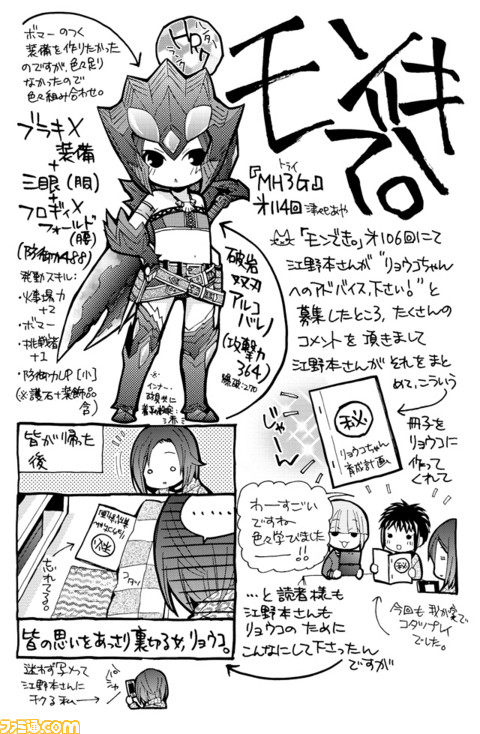 モンでき。
『MH3G』
トライ
オ114回 津々セあや
ハンター
ランク
HR7
ボマーのつく
装備を作りたかった
のですが、色々足り
なかったので
色々組み合わせ。
ブラキX
装備
+
三眼(服)
+
フロギィX
フォールド
(腰)
(防御力488)
発動スキル:
・火事場力
+2
・ボマー
・挑戦者
+1
・防御力UP[小]
(※護石+装飾品
含)
破岩
双刃
アルコ
バレノ
(攻撃力
364)
爆破:270
「モンでき。」オ106回にて
江野本さんが“リョウコちゃん
へのアドバイス下さい!”と
募集したところ、たくさんの
コメントを頂きまして
江野本さんがそれをまと
めて、こういう
冊子を
リョウコに
作って
くれて
じゃーん
㊙
リョウコちゃん
育成計画
わーすごい
ですねー
色々学びました
ー!!
㊙
今回も我が家で
コタツプレイ
でした。
…と読者様も
江野本さんも
リョウコのために
こんなにして下さったん
ですが
皆が帰った
後
忘れてる。
コタツ
皆の思いをあっさり裏切る女、リョウコ。
迷わず写メって
江野本さんに
チクる私―
ファミ通.com